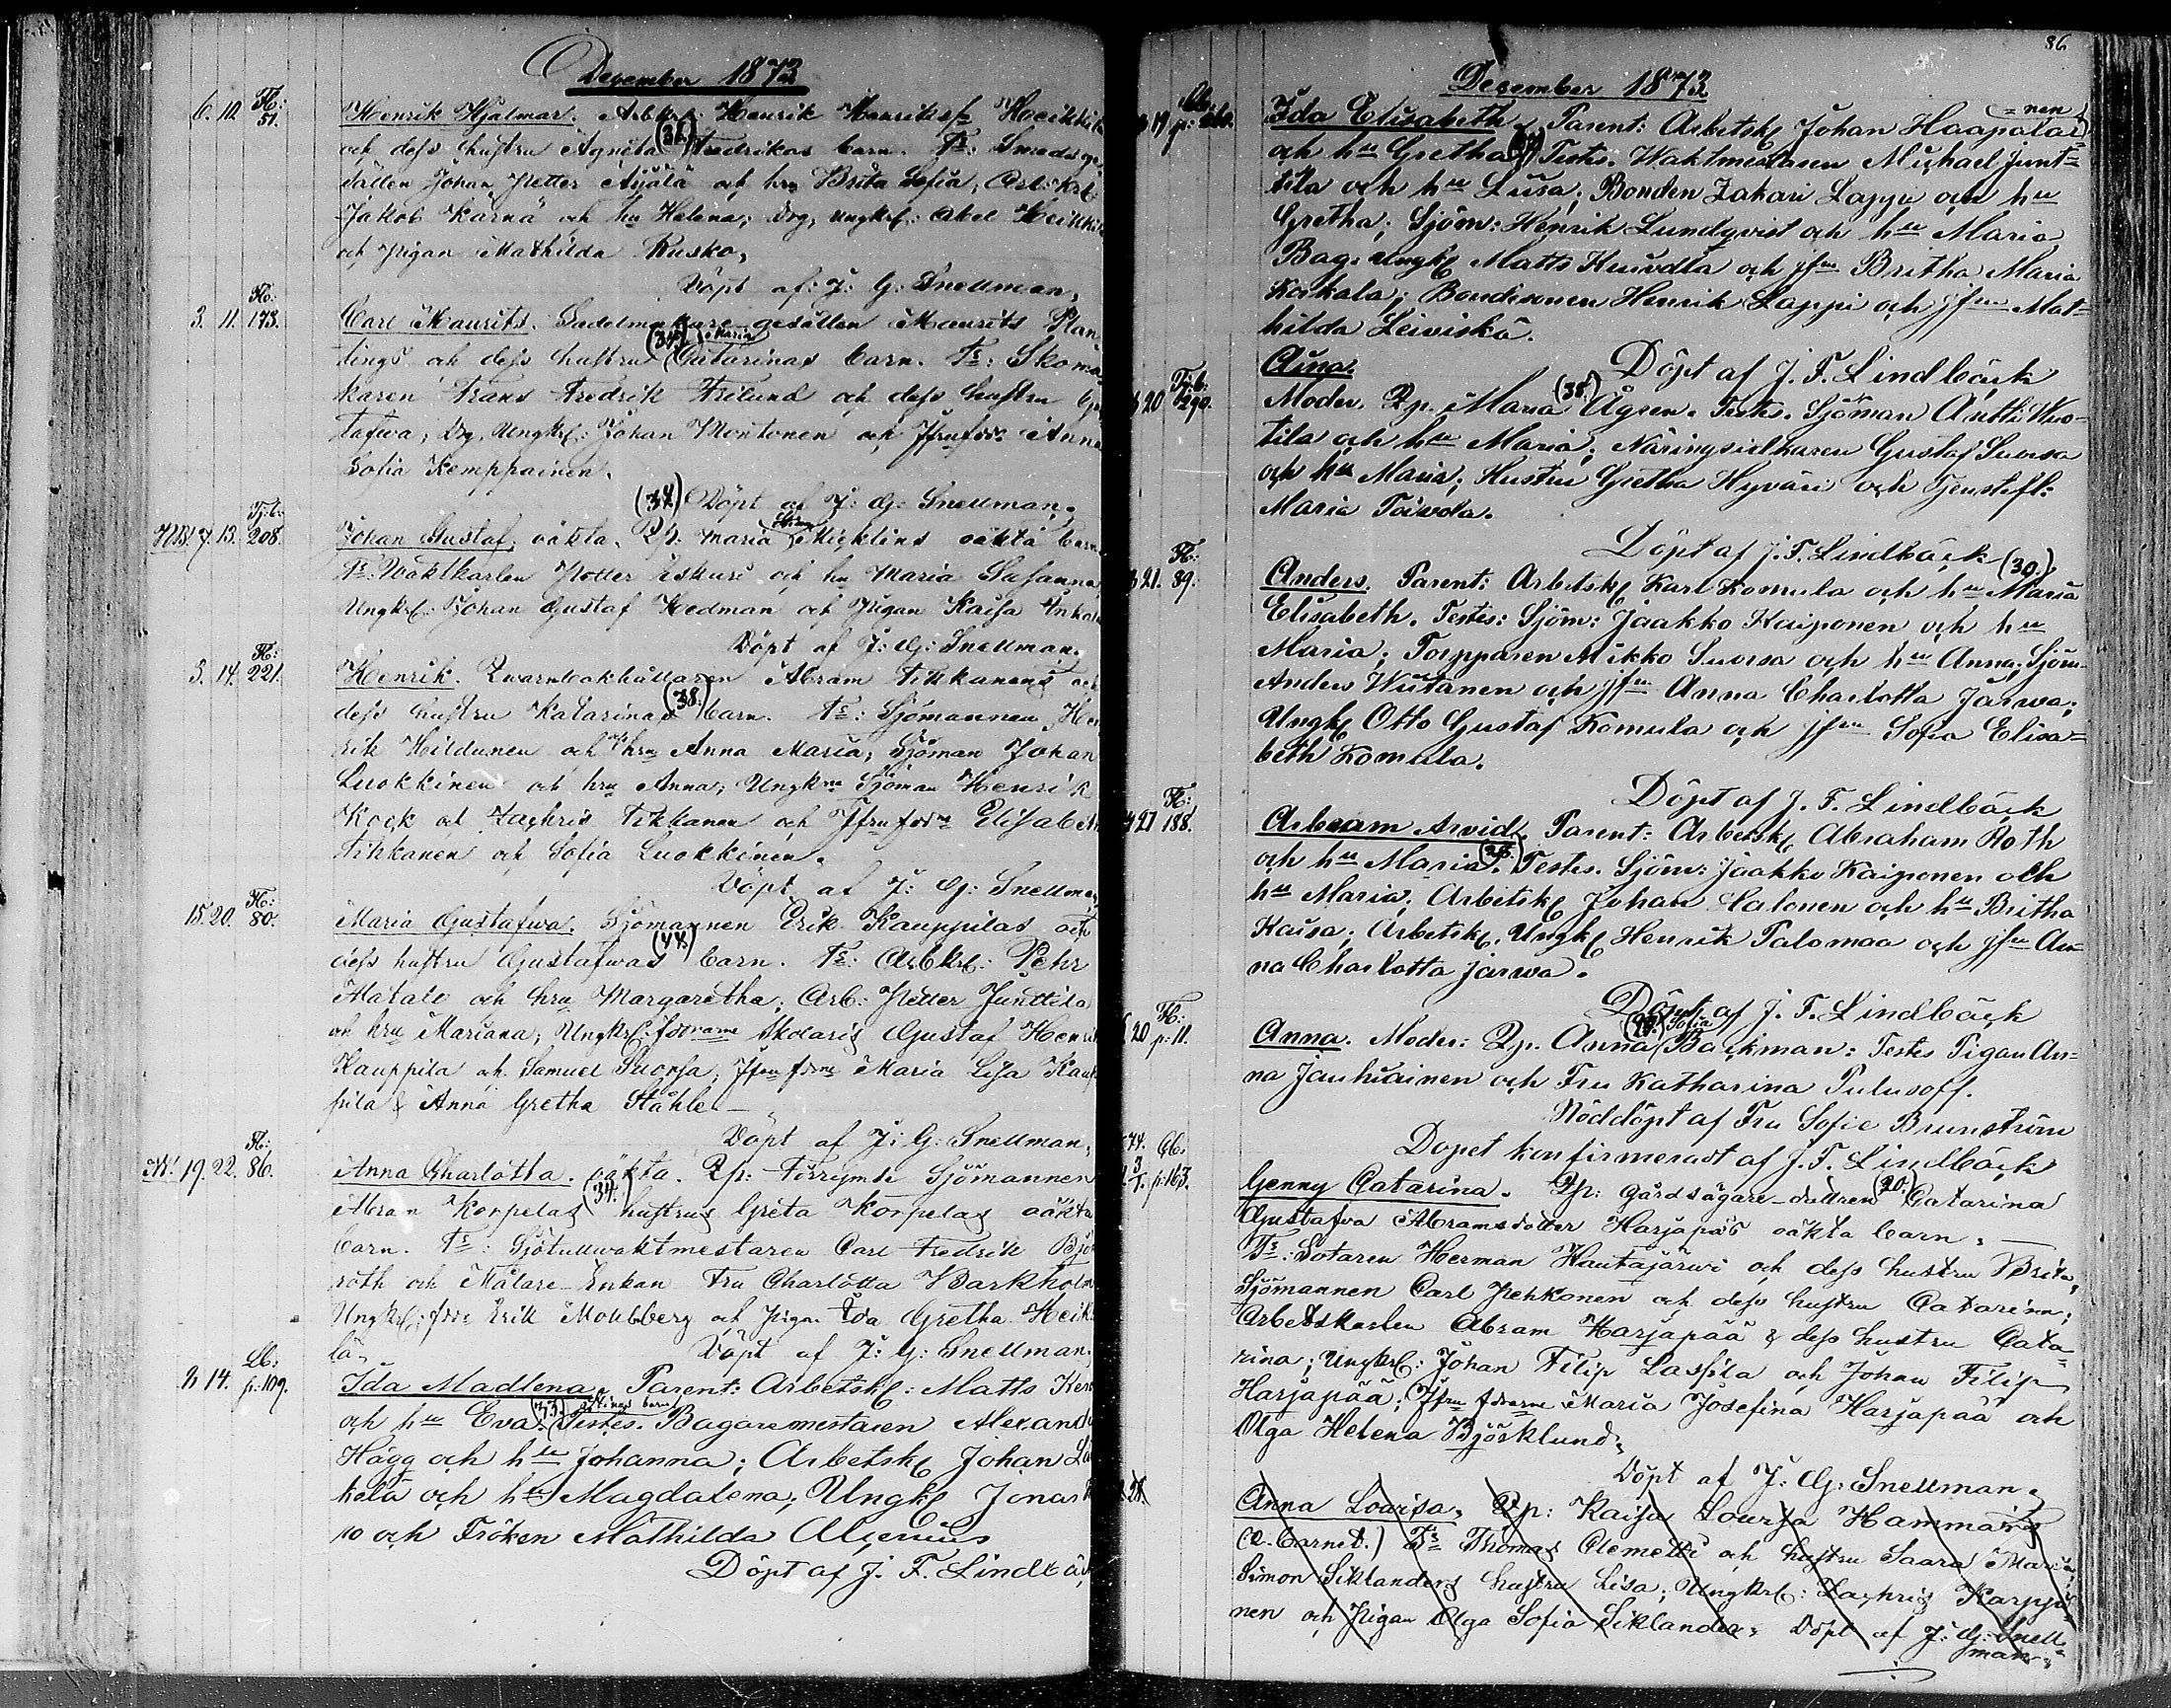 December 1873
6. 10. Fl: 51. Henrik Hjalmar. Arbkrl: Henrik Henrikss
och dess hustru Agneta (36.) Fredrikas barn. Ts: Smedsge
sällen Johan Petter Äijälä och hru Brita Sofia, Arb:krl
Jakob Kärnä och hu Helena; Drg, ungkrl: Abel Heikki
och Pigan Mathilda Rusko,
Döpt af: J: G: Snellman,
3. 11. Fl: 173. Carl Maurits. Sadelmakare gesällen Maurits Plan
tings och dess hustru (34.) Maria Catarinas barn. Ts: Skoma
karen Frans Fredrik Frilund och dess hustru
tafwa; Drg, Ungkrl: Johan Montonen och Jfrufdr Anna
Sofia Kemppainen.
(34.) Döpt af J: G: Snellman.
NB. 7. 13. Tjb: 208. Johan Gustaf, oäkta. Qp: Maria Micklins oäkta barn
Ts: Waktkarlen Petter Eskuri och hu Maria Susanna
Ungkrl: Johan Gustaf Hedman och Pigan Kaisa
Döpt af J: G: Snellman.
3. 14. Fl: 221. Henrik. Qwarnbakhållaren Abram Tikkanens och
dess hustru Katarinas (38.) barn. Ts: Sjömannen Hen
rik Hildunen och hru Anna Maria; Sjöman Johan
Luokkinen och hru Anna; Ungkrne Sjöman Henrik
Kock och Zachris Tikkanen och Jfrufdrne Elisabeth
Tikkanen och Sofia Luokkinen.
Döpt af J: G: Snellman
15. 20. Fl: 80. Maria Gustafwa. Sjömannen Erik Kauppilas och
dess hustru Gustafwas (44.) barn. Ts: Arbkrl: Pehr
Matale och hru Margaretha; Arb: Petter Junttila
och hru Mariana; Ungkrl: fdrarne Skolaris Gustaf Henrik
Kauppila och Samuel Suorsa, Jfrufdrne Maria Lisa Kaup
pila & Anna Gretha Ståhle—
Döpt af J: G: Snellman,
NB. 19. 22. Fl: 86. Anna Charlotta. oäkta. Qp: Förrymde Sjömannen
Abran Korpelas (34.) hustrus Greta Korpelas oäkta
barn. Ts: Sjötullwaktmestaren Carl Fredrik Bjö
roth och Målare Enkan Fru Charlotta Barkholm
Ungkrl: fdr Erik Mollberg och Pigan Ida Gretha Heik
lä, Döpt af J: G: Snellman,
h 14. Lb: p:109. Ida Madlena, Parent: Arbetskl: Matts
och hu Eva. (33.) Testes. Bagaremestaren Alexand
Hägg och hu Johanna; Arbetskl Johan
kela och hu Magdalena; Ungkl Jonas
10 och Fröken Mathilda Alcenius
Döpt af J. F. Lindbäck
86
December 1873
19 p: Ida Elisabeth, Parent: Arbetskl Johan Haapalai=nen
och hu Gretha. Testes. Waktmestaren Michael Junt=
tila och hu Luisa; Bonden Zakari Lappi och hu
Gretha; Sjöm: Henrik Lundqvist och hu Maria,
Bag: ungkl Matts Huivola och jfru Britha Maria
Korkala; Bondesonen Henrik Lappi och jfru Mat=
hilda Leiviskä.
Döpt af J. F. Lindbäck
20 Tjb: 290. Aina.
Moder. Qp. Maria (38.) Ågren. Testes. Sjöman Antti Wuo-
tila och hu Maria; Näringsidkaren Gustaf Suorsa
och hu Maria; Hustru Gretha Hyväri och Tjenstefl:
Maria Toivola.
Döpt af J. F. Lindbäck
21. Fl: 89. Anders. Parent: Arbetskl Karl Komula och hu Maria (30.)
Elisabeth. Testes: Sjöm: Jaakko Kaiponen och hu
Maria; Torpparen Mikko Suorsa och hu Anna; Sjöm.
Anders Wiitanen och jfru Anna Charlotta Järwa;
Ungkl Otto Gustaf Komula och jfru Sofia Elisa=
beth Komula.
Döpt af J. F. Lindbäck
27 Fl: 188. Abram Arvid, Parent: Arbetskl Abraham Roth
och hu Maria. Testes. Sjöm: Jaakko Kaiponen och
hu Maria; Arbetskl Johan Salonen och hu Britha
Kaisa; Arbetskl. Ungkl Henrik Palomaa och jfru An-
na Charlotta Jarwa.
Döpt af J. F. Lindbäck
20 Fl: p:11. Anna. Moder: Qp. Anna Sofia Backman: Testes Pigan An=
na Jauhiainen och Fru Katharina Pulusoff.
Nöddöpt af Fru Sofie Brunström
Dopet konfirmeradt af J. F. Lindbäck
74. 3 Ob. p:163. Genny Catarina. Qp: Gårdsägare-dottren (20.) Catarina
Gustafva Abramsdotter Harjapääs oäkta barn. —
Ts: Sotaren Herman Hautajärwi och dess hustru Brita,
Sjömannen Carl Pehkonen och dess hustru Catarina;
Arbetskarlen Abram Harjapää & dess hustru Cata-
rina; Ungkrl: Johan Filip Laspila och Johan Filip
Harjapää; Jfrufdrarne Maria Josefina Harjapää och
Olga Helena Björklund,
Döpt af J: G: Snellman.
28. Anna Lovisa, Qp: Kaisa Lovisa Hammars
(D. Barnet.) Ts Thomas Clemetti och hustru Saara Maria,
Simon Siklanders hustru Lisa; Ungkrl: Zachris Karppi
nen och Pigan Olga Sofia Siklander. Döpt af J: G: Snell
man.